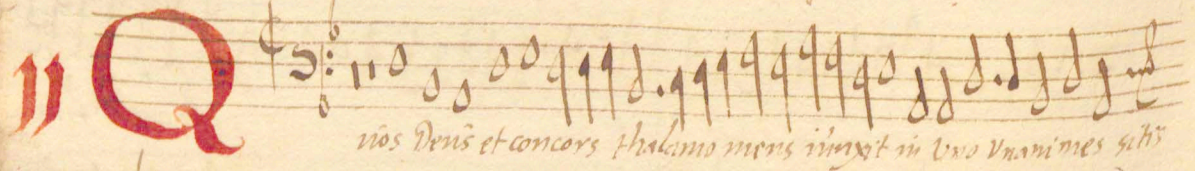 II Quos Deus et concors thalamo mens iunxit in Uno Unanimes sitis